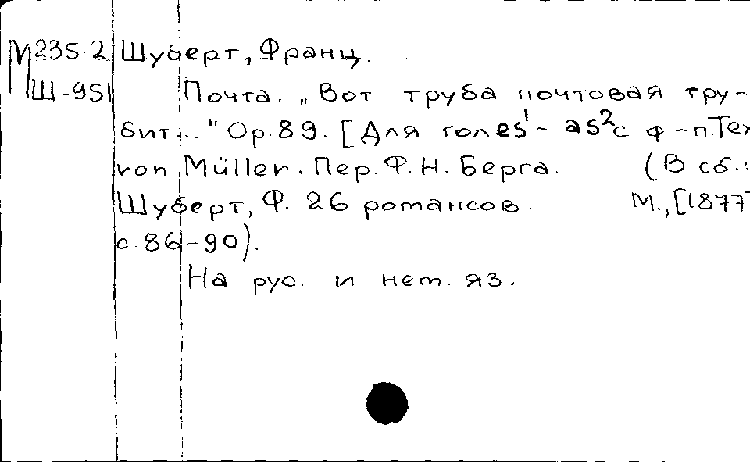 М235.2 Шуберт, Франц.
Ш-951 Почта. „Вот труба почтовая тру-
бит..." Ор.89. [Для гол es¹- as² с ф-п. Тек
von Müller. Пер. Ф.Н. Берга. (В сб.:
Шуберт, Ф. 26 романсов. М., [1877]
с.86-90).
На рус. и нем. яз.